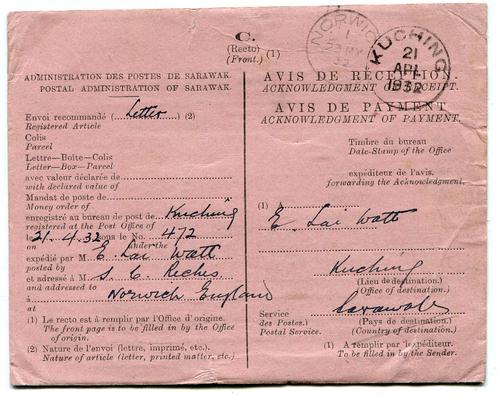 C.
(Recto)
(Front.) (1)
NORWICH
1
23 MY
32
KUCHING
21
APL
1932
ADMINISTRATION DES POSTES DE SARAWAK.
POSTAL ADMINISTRATION OF SARAWAK.
Envoi recommandé (Letter) (2)
Registered Article
Colis
Parcel
Lettre—Boîte—Colis
Letter—Box—Parcel
avec valeur déclarée de
with declared value of
Mandat de poste de
Money order of
enregistré au bureau de post de Kuching
registered at the Post Office of
le 21.4.32 sous le No. 472
on under the
expédié par M E. Lai Watt
posted by
et adressé à M S. C. Riches
and addressed to
à Norwich England
at
(1) Le recto est à remplir par l'Office d'origine.
The front page is to be filled in by the Office
of origin.
(2) Nature de l'envoi (lettre, imprimé, etc.).
Nature of article (letter, printed matter, etc.)
AVIS DE RÉCEPTION.
ACKNOWLEDGMENT OF RECEIPT.
AVIS DE PAYMENT
ACKNOWLEDGMENT OF PAYMENT.
Timbre du bureau
Date-Stamp of the Office
expéditeur de l'avis.
forwarding the Acknowledgment.
(1)
E. Lai Watt
Kuching
(Lieu de destination)
(Office of destination).
Sarawak
Service des Postes.
Postal Service.
(Pays de destination).
(Country of destination).
(1) A remplir par l'expéditeur.
To be filled in by the Sender.